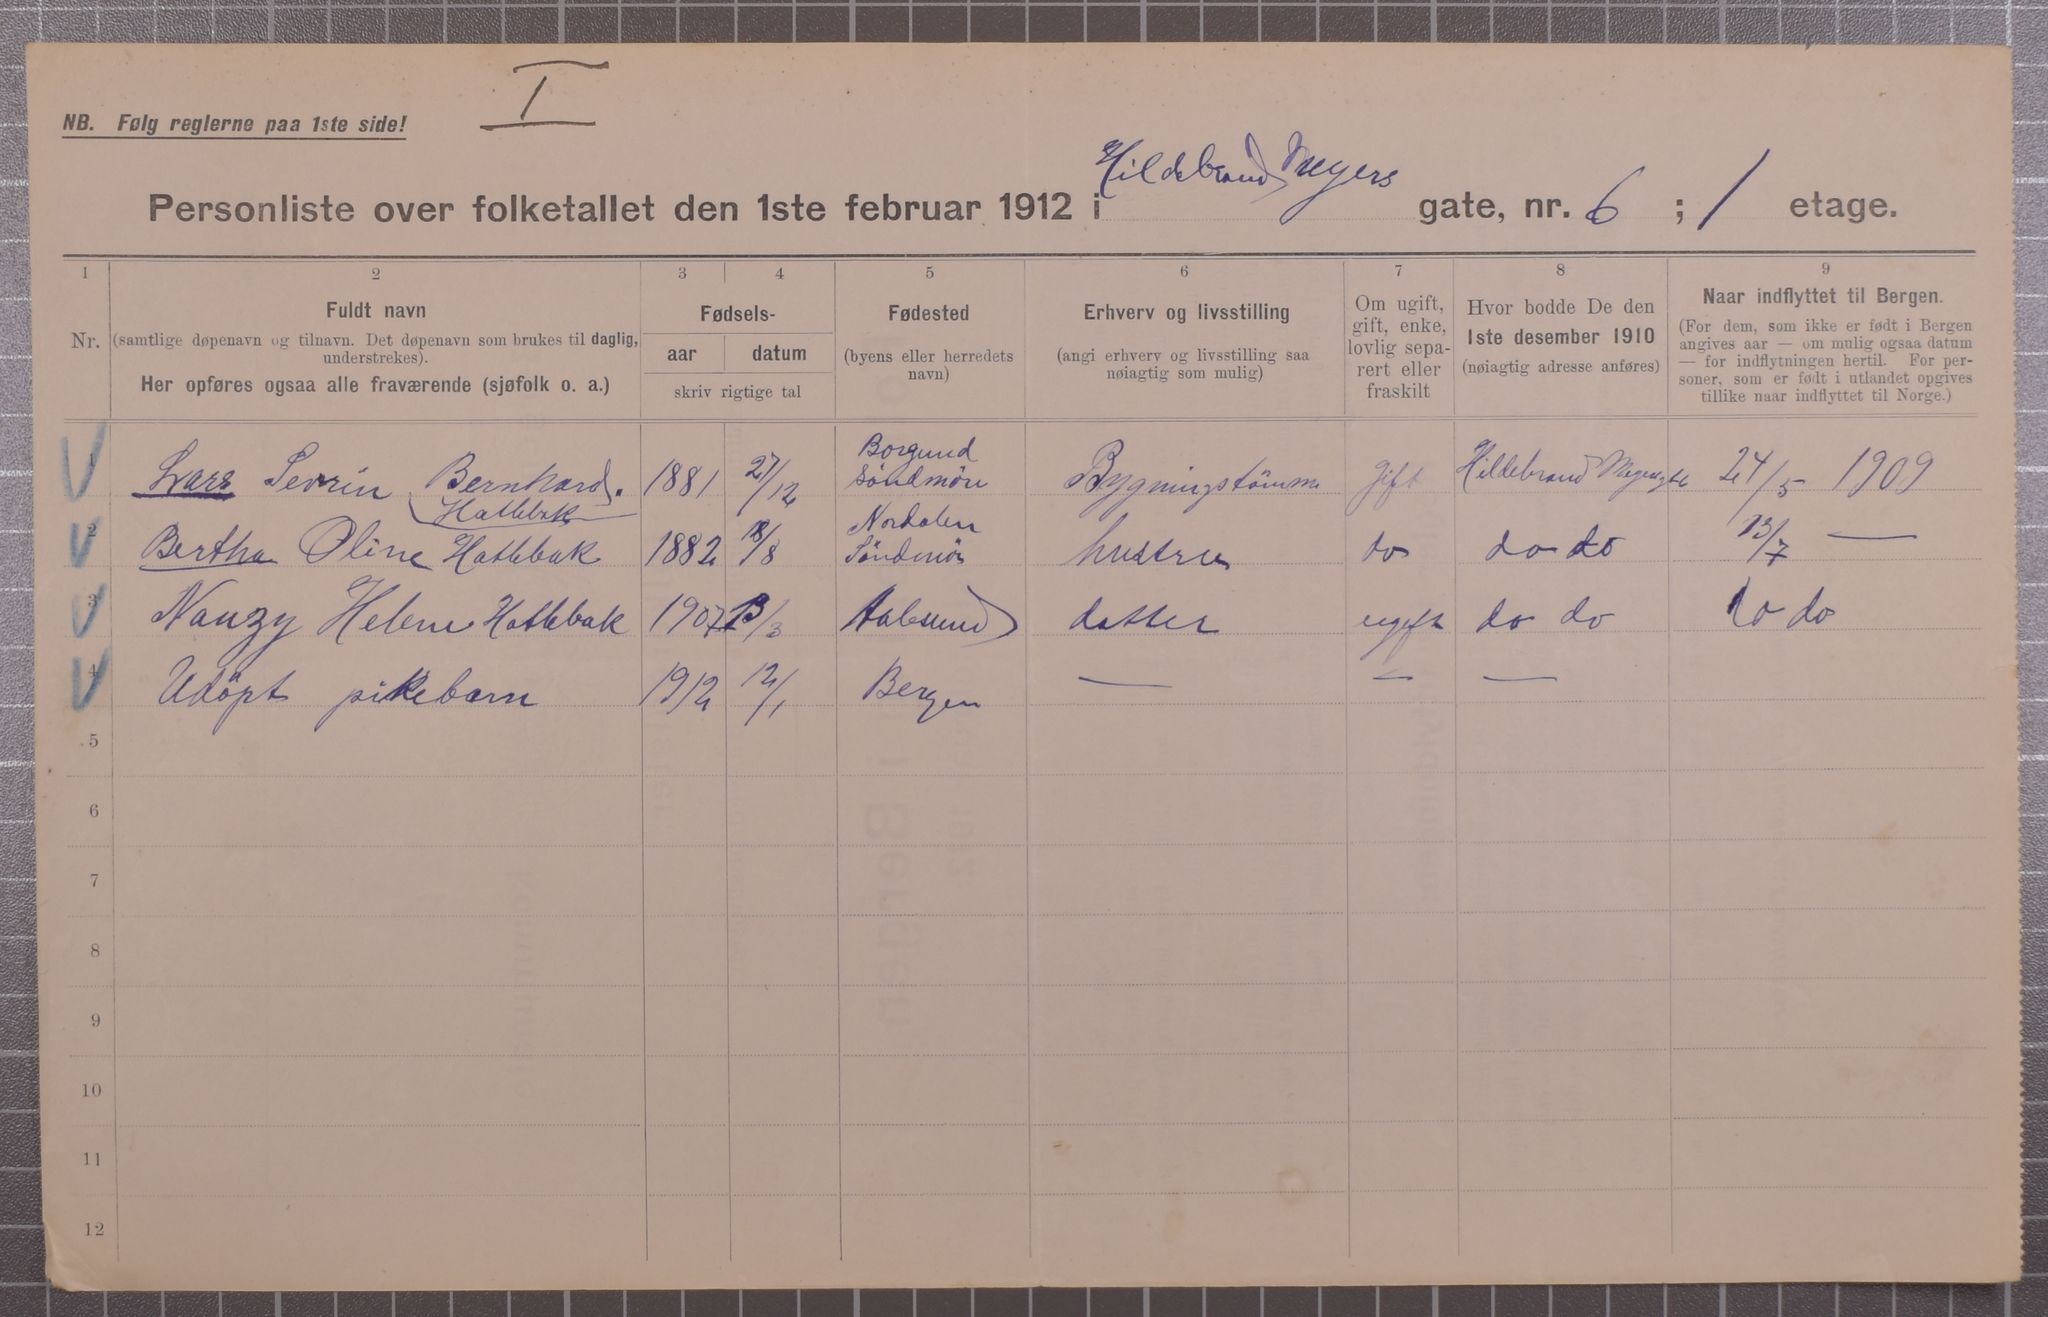 I
NB. Følg reglerne paa 1ste side!
Personliste over folketallet den 1ste februar 1912 i Hildebrand Meyers gate, nr. 6 ; 1 etage.
1 2 3 4 5 6 7 8 9
Nr.
Fuldt navn
(samtlige døpenavn og tilnavn. Det døpenavn som brukes til daglig,
understrekes).
Her opføres ogsaa alle fraværende (sjøfolk o. a.)
Fødsels-
aar datum
skriv rigtige tal
Fødested
(byens eller herredets
navn)
Erhverv og livsstilling
(angi erhverv og livsstilling saa
nøiagtig som mulig)
Om ugift,
gift, enke,
lovlig sepa-
rert eller
fraskilt
Hvor bodde De den
1ste desember 1910
(nøiagtig adresse anføres)
Naar indflyttet til Bergen.
(For dem, som ikke er født i Bergen
angives aar — om mulig ogsaa datum
— for indflytningen hertil. For per-
soner, som er født i utlandet opgives
tillike naar indflyttet til Norge.)
1 Lars Sevrin Bernhard Hatlebak 1881 27/12 Borgund Söndmör gift Hildebrand 24/5 1909
2 Bertha Oline Hatlebak 1882 18/8 Nordalen Söndmör hustru do do do 13/7 —
3 Nanzy Helene Hatlebak 1907 /3 Aalesund datter ugift do do do do
4 Udöpt pikebarn 1912 12/1 Bergen — — —
5
6
7
8
9
10
11
12